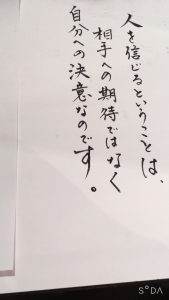 人を信じるということは、
相手への期待ではなく
自分への決意なのです。
SODA